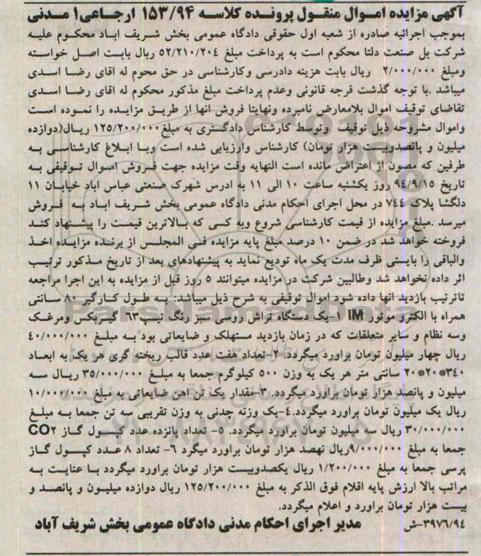 آگهی مزایده اموال منقول پرونده کلاسه ۱۵۳/۹۴ ارجاعی۱ مدنی
بموجب اجرائیه صادره از شعبه اول حقوقی دادگاه عمومی بخش شریف اباد محکوم علیه
شرکت یل صنعت دلتا محکوم است به پرداخت مبلغ ۵۲/۲۱۰/۲۰۴ ریال بابت اصل خواسته
ومبلغ ۲/۰۰۰/۰۰۰ ریال بابت هزینه دادرسی وکارشناسی در حق محوم له اقای رضا اسدی
میباشد .با توجه گذشت فرجه قانونی وعدم پرداخت مبلغ مذکور محکوم له اقای رضا اسدی
تقاضای توقیف اموال بلامعارض نامبرده ونهایتا فروش انها از طریق مزایده را نموده است
واموال مشروحه ذیل توقیف وتوسط کارشناس دادگستری به مبلغ ۱۲۵/۲۰۰/۰۰۰ ریـال(دوازده
میلیون و پانصدوبیست هزار تومان) کارشناس وارزیابی شده است وبـا ابـلاغ کارشناسی به
طرفین که مصون از اعتراض مانده است النهایه وقت مزایده جهت فـروش امـوال تـوقیفی به
تاریخ ۹۴/۹/۱۵ روز یکشنبه ساعت ۱۰ الی ۱۱ به ادرس شهرک صنعتی عباس اباد خیابان ۱۱
دلگشا پلاک ۷۴۴ در محل اجرای احکام مدنی دادگاه عمومی بخش شریف اباد به فروش
میرسد .مبلغ مزایده از قیمت کارشناسی شروع وبه کسی که بالاترین قیمت را پیشنهاد کند
فروخته خواهد شد در ضمن ۱۰ درصد مبلغ پایه مزایده فـی المجلـس از برنده مزایـده اخـذ
والباقی را بایستی ظرف مدت یک ماه تودیع نماید به پیشنهادهای بعد از تاریخ مذکور ترتیب
اثر داده نخواهد شد وطالبین شرکت در مزایده میتوانند ۵ روز قبل از مزایده به این اجرا مراجعه
تاترتیب بازدید انها داده شود اموال توقیفی به شرح ذیل میباشد: به طول کارگیر۸۰ سانتی
همراه با الکترو موتور IM ۱-یک دستگاه تراش روسی سبز رنگ تیپ۱۶۳ گیربکس ومرغک
وسه نظام و سایر متعلقات که در زمان بازدید مستهلک و ضایعاتی بود بـه مبـلغ ۴۰/۰۰۰/۰۰۰
ریال چهار میلیون تومان براورد میگردد. ۲-تعداد هفت عدد قالب ریخته گری هر یک به ابعـاد
۳۴۰*۲۰*۲۰ سانتی متر هر یک به وزن ۵۰۰ کیلوگرم جمعا به مبلـغ ۳۵/۰۰۰/۰۰۰ ریـال سـه
میلیون و پانصد هزار تومان براورد میگردد. ۳-مقدار یک تن اهن ضایعاتی به مبلغ ۱۰/۰۰۰/۰۰۰
ریال یک میلیون تومان براورد میگردد.۴-یک وزنه چدنی به وزن تقریبی سه تن جمعا بـه مبلـغ
۳۰/۰۰۰/۰۰۰ ریال سه میلیون تومان براورد میگردد. ۵- تعداد پانزده عدد کپسول گـاز CO۲
جمعا به مبلغ ۹/۰۰۰/۰۰۰ریال نهصد هزار تومان براورد میگرد ۶- تعداد ۸ عدد کپسول گـاز
پرسی جمعا به مبلغ ۱/۲۰۰/۰۰۰ ریال یکصدوبیست هزار تومان براورد میگردد با عنایت به
مراتب بالا ارزش پایه اقلام فوق الذکر به مبلغ ۱۲۵/۲۰۰/۰۰۰ ریال دوازده میلیون و پانصد و
بیست هزار تومان براورد و اعلام میگردد.
۳۹۷۶/۹۴-ش مدیر اجرای احکام مدنی دادگاه عمومی بخش شریف آباد